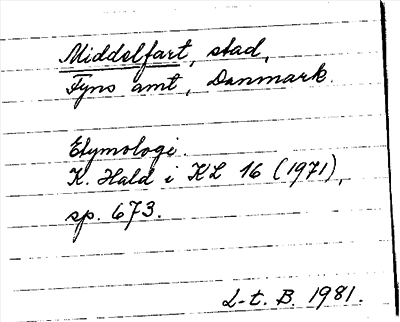 Middelfart, stad,
Fyns amt, Danmark.
Etymologi.
K. Hald i KL 16 (1971),
sp. 673.
L-t. B. 1981.